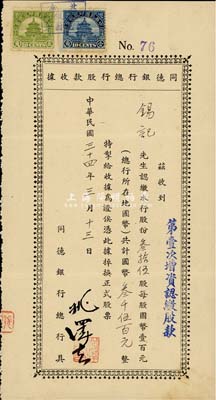 No. 76
同德銀行總行股款收據
茲收到
錫記
先生認繳本行股份叁拾伍股每股國幣壹百元
(總行所在地國幣)共計國幣叁仟伍百元整
特掣給收據為證俟憑此據掉換正式股票
中華民國三十四年三月十三日
同德銀行總行具
第壹次增資認繳股款
10 CENTS